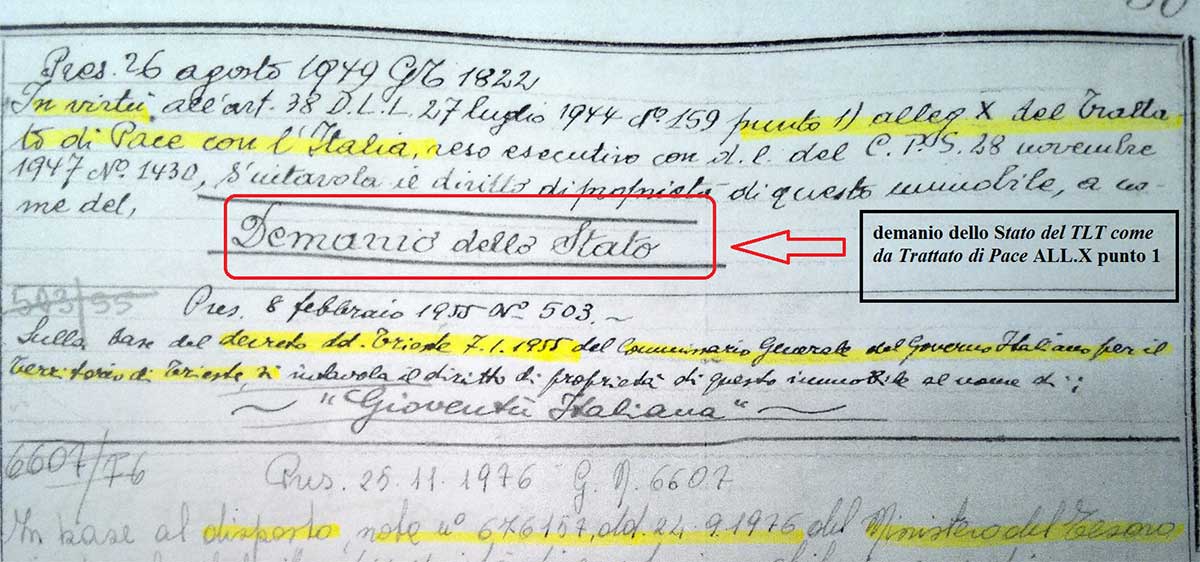 Pres. 26 agosto 1949 GN 1822
In virtù all'art. 38 D.L.L. 27 luglio 1944 Nº 159 punto 1) alleg X del Tratta
to di Pace con l'Italia, reso esecutivo con d.l. del C.P.S. 28 novembre
1947 Nº 1430, s'intavola il diritto di proprietà di questo immobile, a no-
me del,
Demanio dello Stato
demanio dello Stato del TLT come
da Trattato di Pace ALL.X punto 1
503/55
Pres. 8 febbraio 1955 Nº 503.
Sulla base del decreto dd. Trieste 7.1.1955 del Commissario Generale del Governo Italiano per il
Territorio di Trieste, si intavola il diritto di proprietà di questo immobile al nome di:
"Gioventù Italiana"
6607/76
Pres. 25.11.1976 G.N. 6607
In base al disposto note nº 676157, dd. 24.9.1976 del Ministero del Tesoro